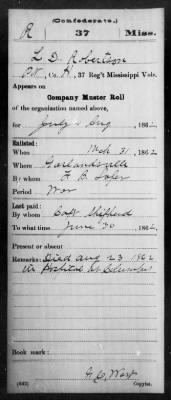 (Confederate.)
R 37 Miss.
L D. Robertson
Pvt, Co. 37 Reg't Mississippi Vols.
Appears on
Company Muster Roll
of the organization named above,
for July & Aug, 1862.
Enlisted:
When Mch 31, 1862
Where Garlandsville
By whom
Period War
Last paid:
By whom Capt Shepherd
To what time June 30, 1862.
Present or absent
Remarks: Died Aug 23 1862
in Hospital at Columbus
Book mark:
(642) Copyist.